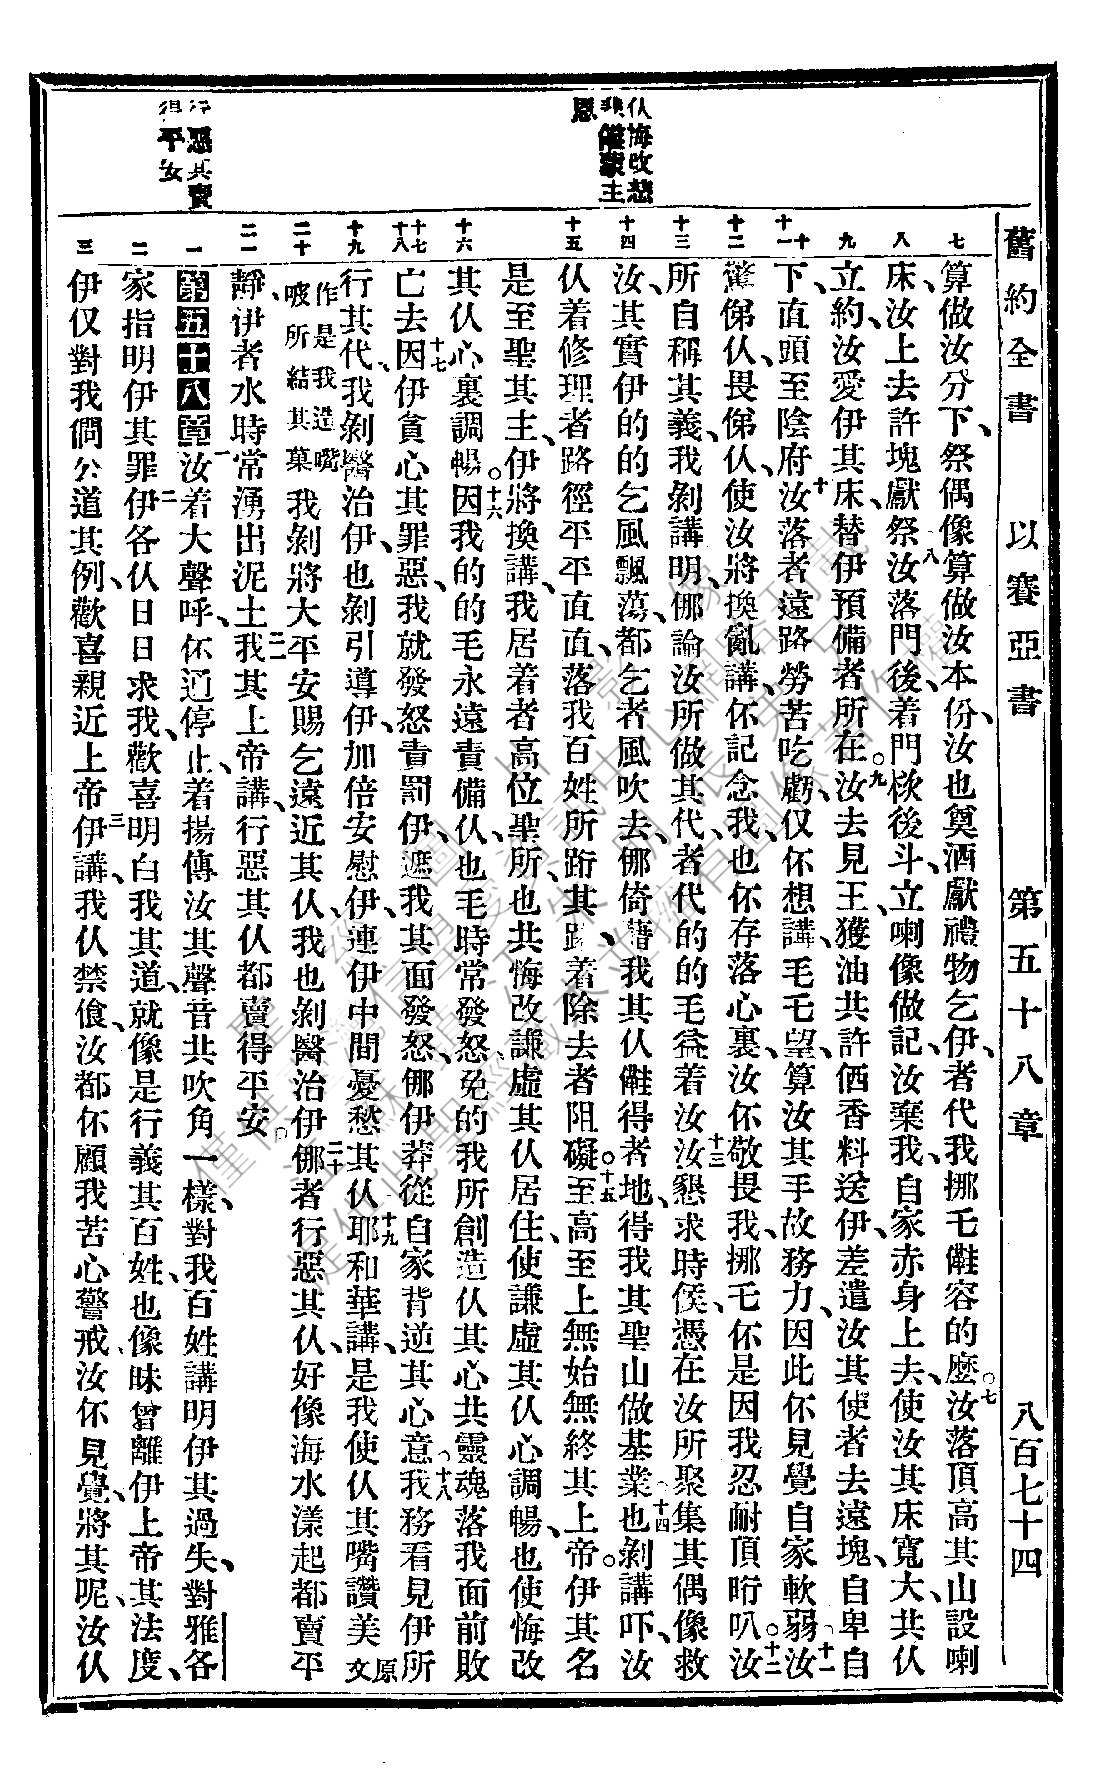 舊約全書 以賽亞書 第五十八章 八百七十四
仇悔改
蒙主
恩
惡其賣
平安
七 八 九 十 十一 十二 十三 十四 十五 十六 十七 十八 十九 二十 二一 一 二 三
算做汝分下、祭偶像算做汝本份、汝也奠酒獻禮物乞伊、者代我挪乇儺容的麽。七汝落頂高其山設喇
床、汝上去許塊獻祭八汝落門後、着門楸後斗立喇像做記、汝棄我、自家赤身上去、使汝其床寬大、共仈
立約、汝愛伊其床、替伊預備者所在。九汝去見王、獲油共許価香料送伊、差遣汝其使者去遠塊、自卑自
下、直頭至陰府十汝落者遠路勞苦吃虧、仅伓想講、乇乇望、算汝其手故務力、因此伓見覺自家軟弱十一汝
驚俤仈、畏俤仈、使汝將換亂講、伓記念我、也伓存落心裏、汝伓敬畏我、挪乇伓是因我忍耐頂昕叭。十二汝
所自稱其義、我剝講明、㑚論汝所做其代、者代的的乇益着汝十三汝懇求時候、憑在汝所聚集其偶像救
汝、其實伊的的乞風飄蕩、都乞者風吹去、㑚倚藉我其仈儺得者地、得我其聖山做基業十四也剝講吓、汝
仈着修理者路徑平平直直、落我百姓所跕其路、着除去者阻礙。十五至高至上無始無終其上帝、伊其名
是至聖其主、伊將換講、我居着者高位聖所、也共悔改謙虛其仈居住、使謙虛其仈心調暢、也使悔改
其仈心裏調暢。十六因我的的乇永遠責備仈、也乇時常發怒、免的我所創造仈其心共靈魂落我面前敗
亡去十七因伊貪心其罪惡、我就發怒責罰伊、遮我其面發怒、㑚伊莽從自家背逆其心意十八我務看見伊所
行其代、我剝醫治伊、也剝引導伊、加倍安慰伊、連伊中間憂愁其仈十九耶和華講、是我使仈其嘴讚美原文
作是我造嘴唆所結其菓 我剝將大平安賜乞遠近其仈、我也剝醫治伊二十㑚者行惡其仈、好像海水漾起都賣平
靜、伊者水時常湧出泥土二一我其上帝講、行惡其仈都賣得平安。
第五十八章 一汝着大聲呼、伓通停止、着揚傳汝其聲音共吹角一樣、對我百姓講明伊其過失、對雅各
家指明伊其罪二伊各仈日日求我、歡喜明白我其道、就像是行義其百姓、也像昧曾離伊上帝其法度、
伊仅對我僴公道其例、歡喜親近上帝三伊講、我仈禁飡、汝都伓顧我苦心警戒汝伓見覺、將其呢、汝仈